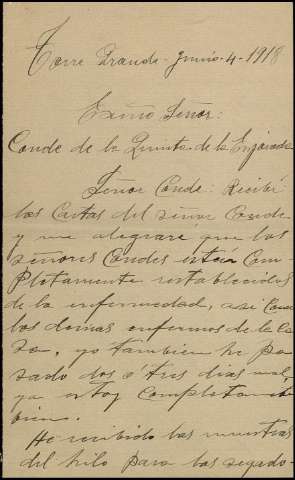 Torre Grande - Junio - 4 - 1918
Exmo Señor:
Conde de la Quinta de la Enjarada
Señor Conde: Recibí
las Cartas del señor Conde
y me alegraré que los
señores Condes estén Com-
pletamente restablecidos
de la enfermedad, asi Como
los demas enfermos de la Ca-
sa, yo tambien he pa-
sado dos ó tres dias mal,
ya estoy Completamente
bien.
He recibido las muestras
del hilo para las segado-